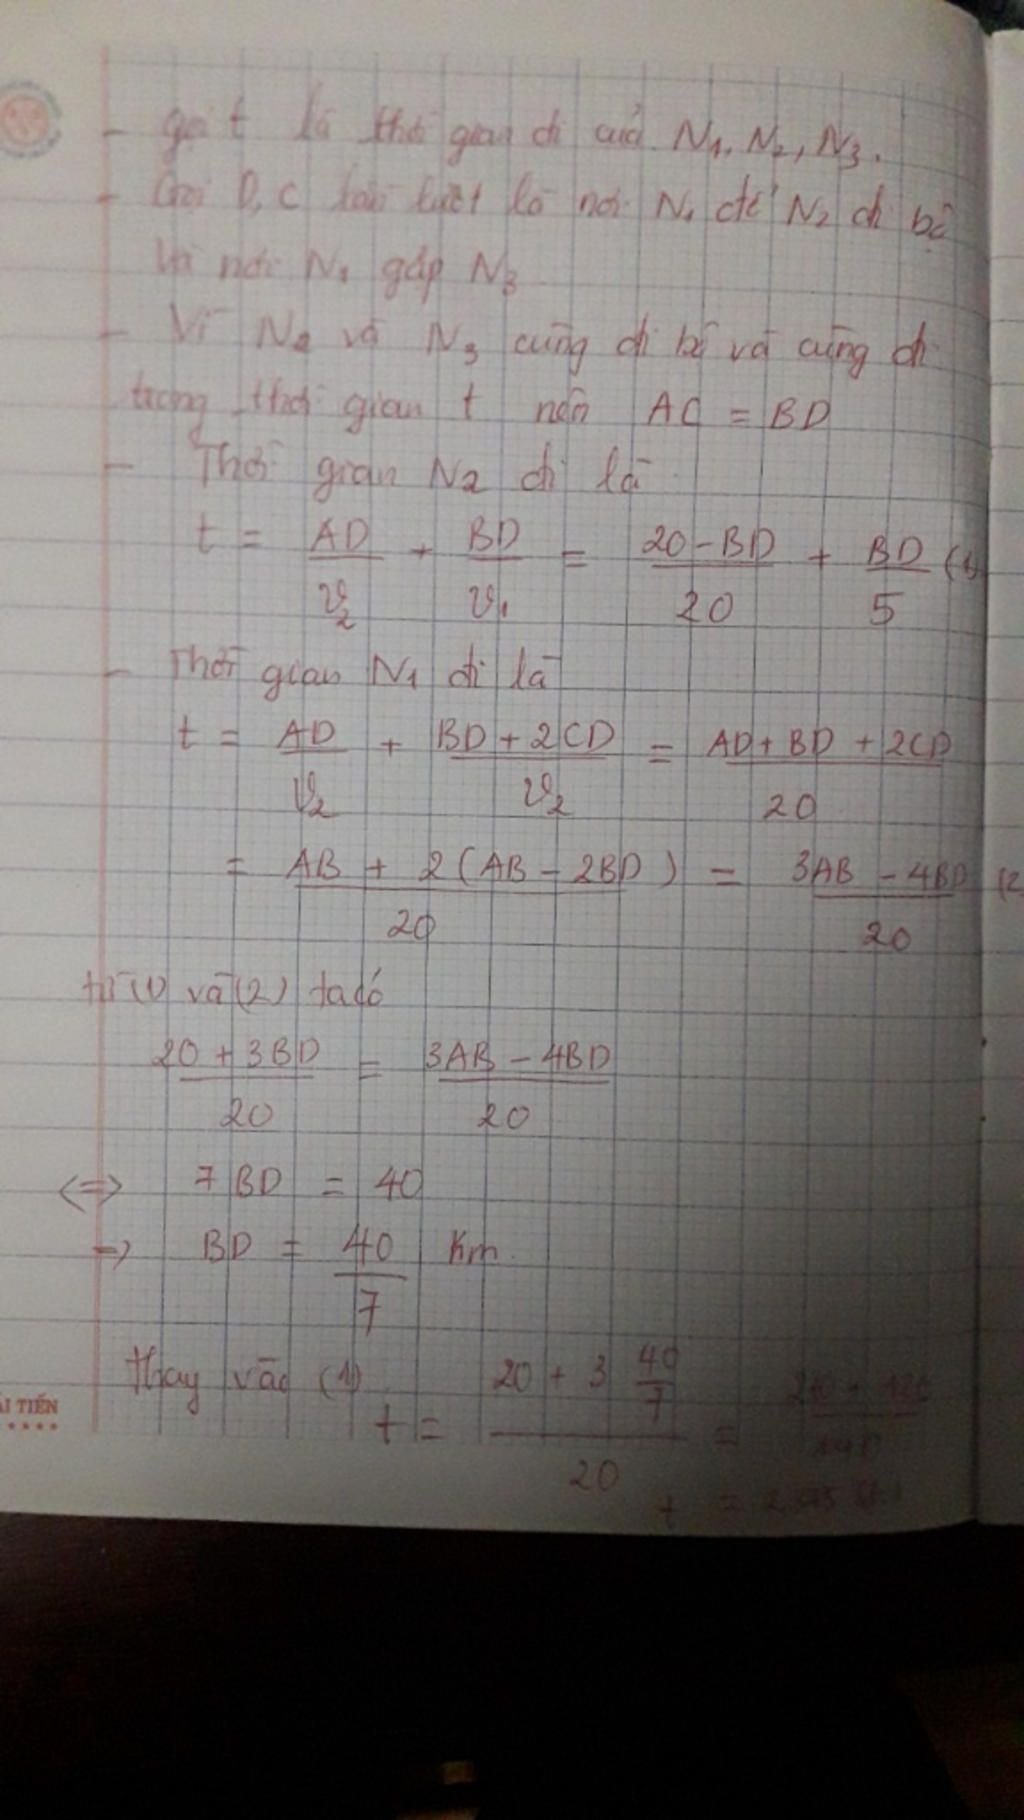 - gọi t là thời gian đi của N1, N2, N3.
- Gọi D, C lần lượt là nơi N1 để N2 đi bộ
và nơi N1 gặp N3
- Vì N2 và N3 cùng đi bộ và cùng đi
trong thời gian t nên AC = BD
- Thời gian N2 đi là
t = AD/v2 + BD/v1 = (20 - BD)/20 + BD/5 (1)
- Thời gian N1 đi là
t = AD/v2 + (BD + 2CD)/v2 = (AD + BD + 2CD)/20
= (AB + 2(AB - 2BD))/20 = (3AB - 4BD)/20 (2
từ (1) và (2) ta có
(20 + 3BD)/20 = (3AB - 4BD)/20
<=> 7BD = 40
-> BD = 40/7 Km.
Thay vào (1)
t = (20 + 3 40/7)/20 =
t =
ẢI TIẾN